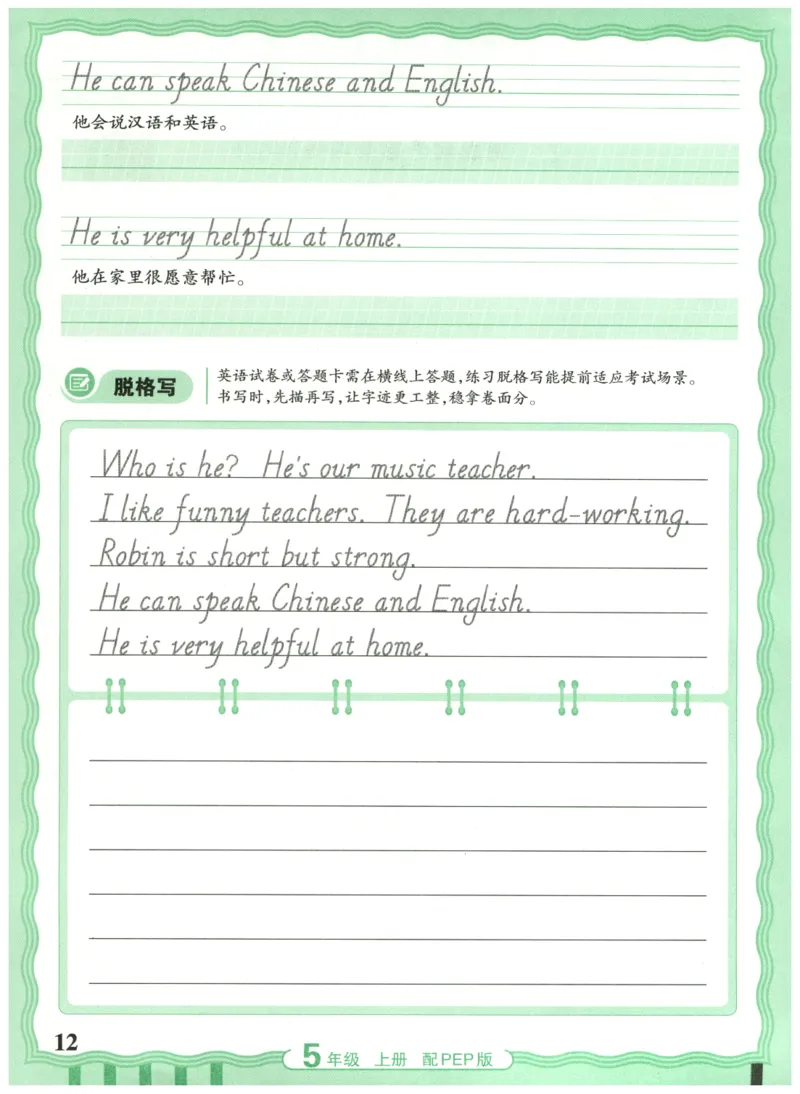 He can speak Chinese and English.
他会说汉语和英语。
He is very helpful at home.
他在家里很愿意帮忙。
脱格写
英语试卷或答题卡需在横线上答题,练习脱格写能提前适应考试场景。
书写时,先描再写,让字迹更工整,稳拿卷面分。
Who is he? He's our music teacher.
I like funny teachers. They are hard-working.
Robin is short but strong.
He can speak Chinese and English.
He is very helpful at home.
12
5年级 上册 配PEP版